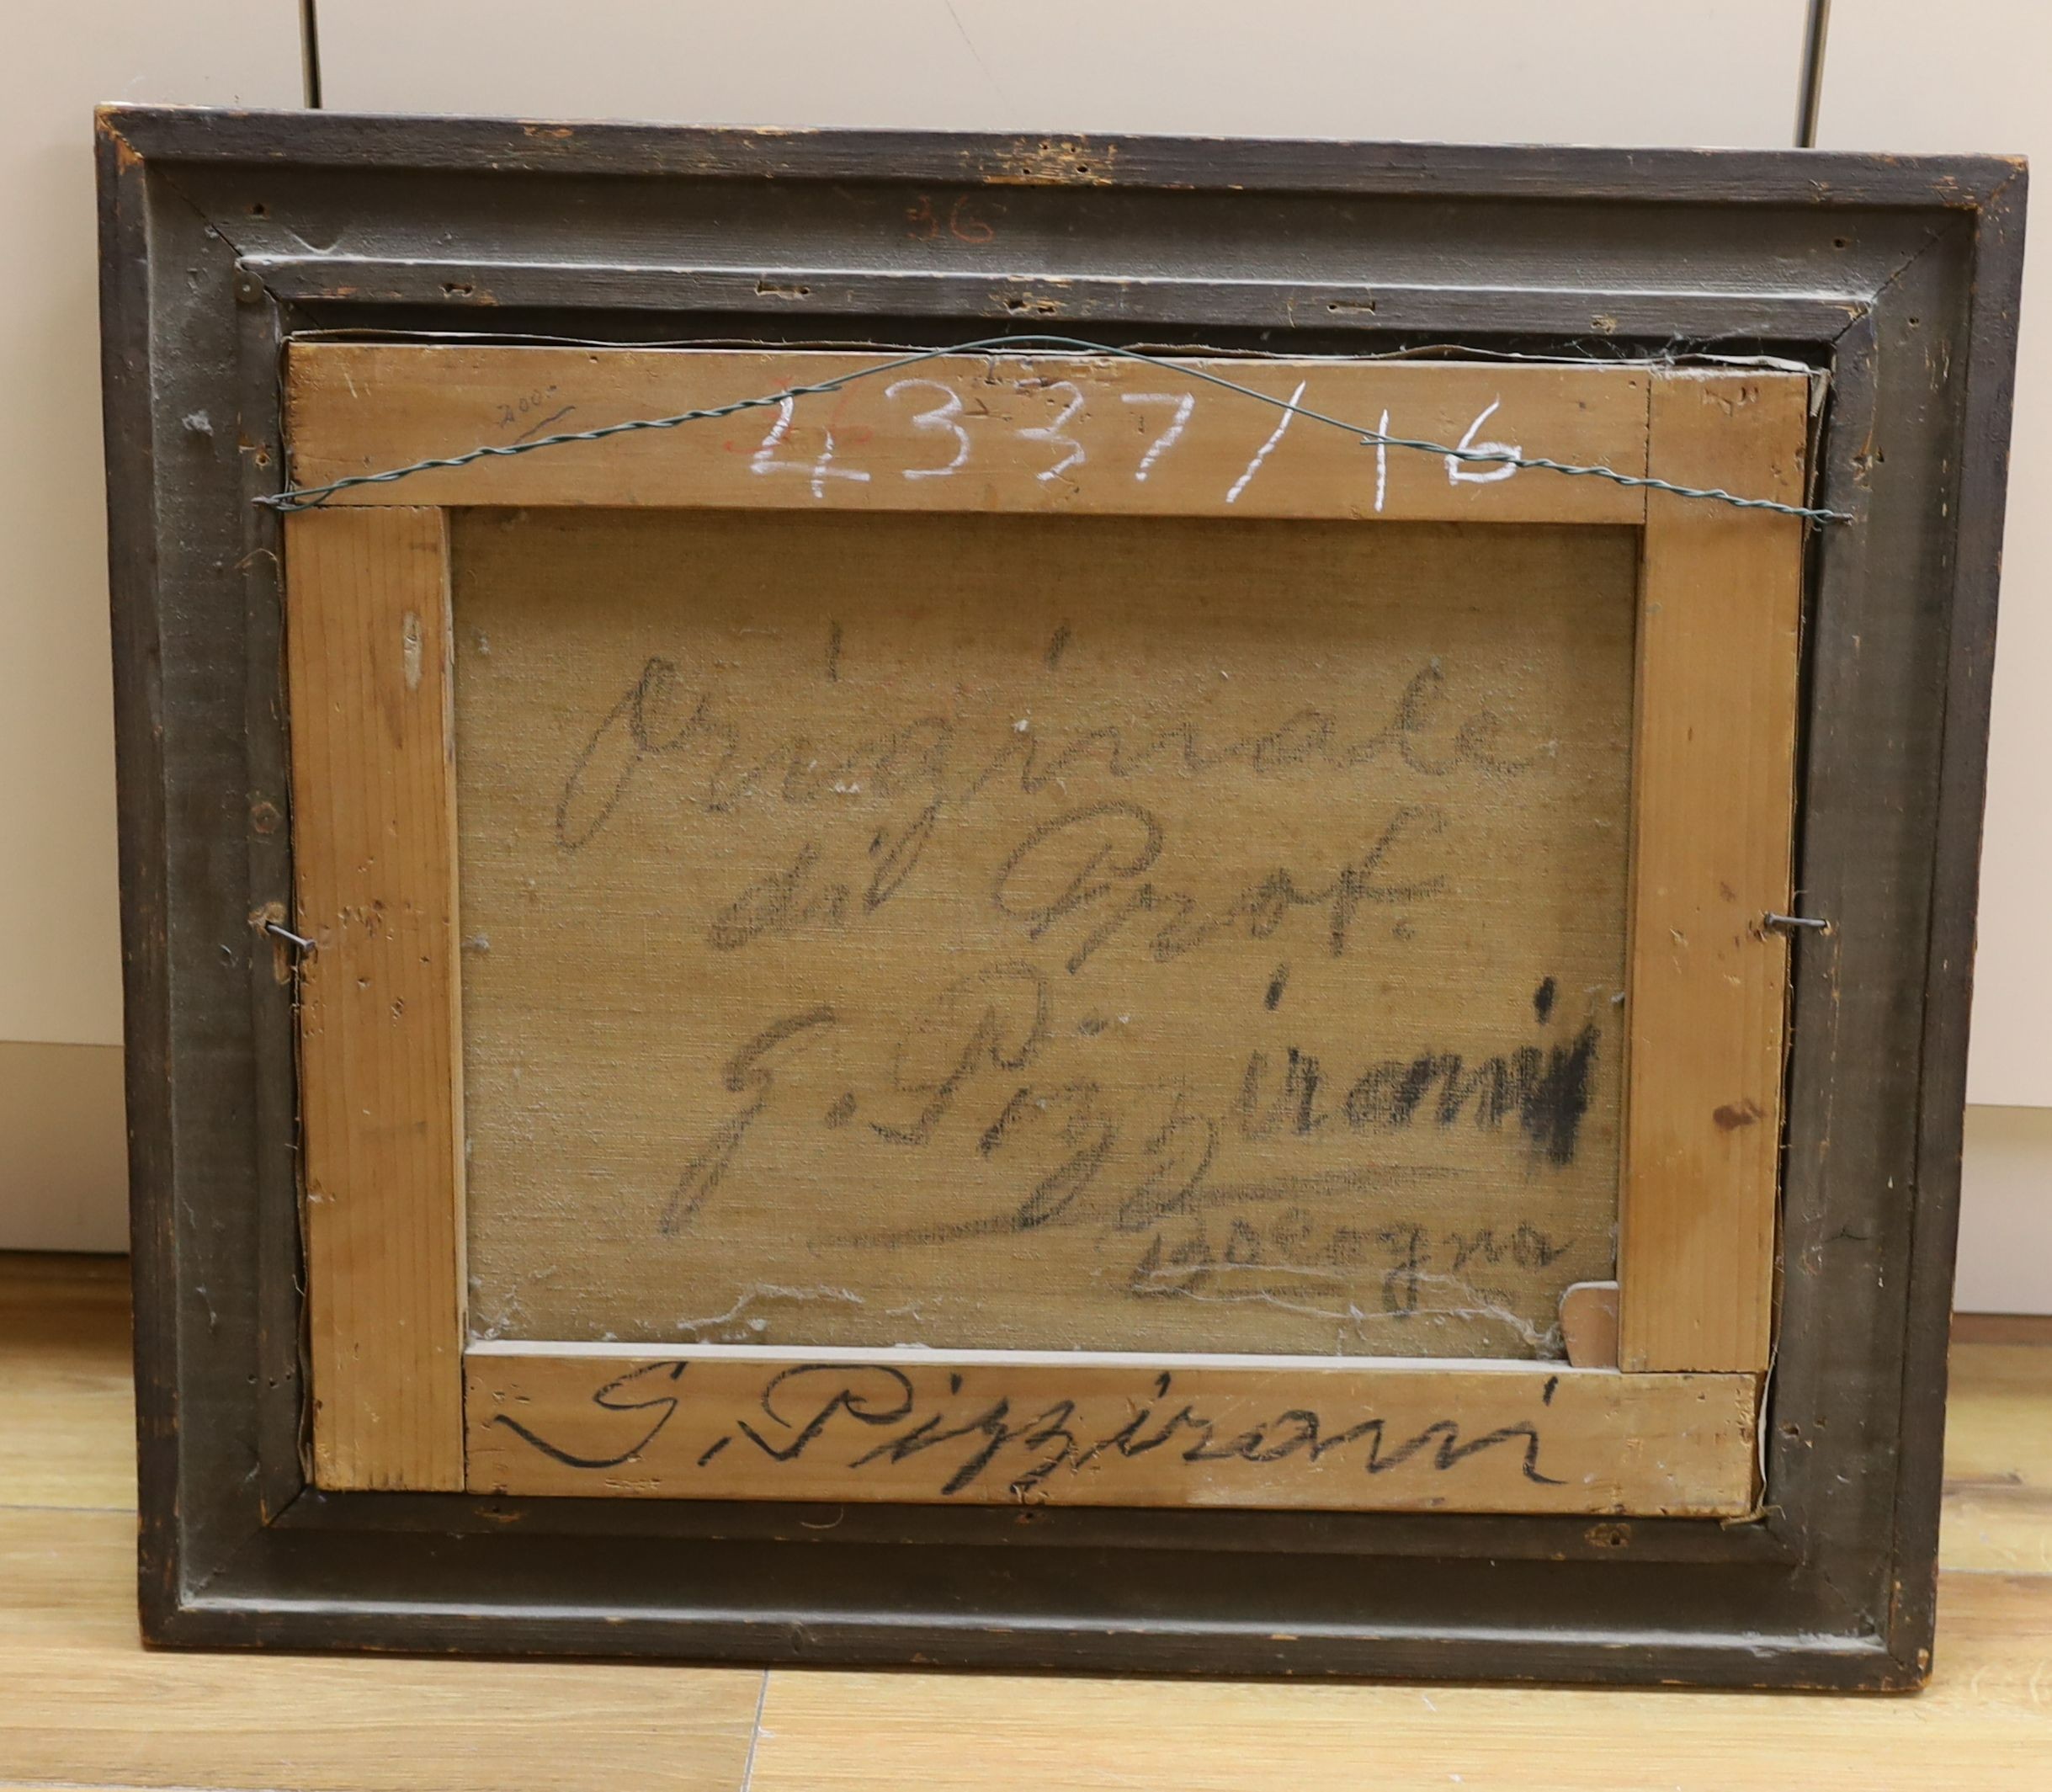 36
4337/16
Originale
di Prof.
G. Pizzirani
Bologna
G. Pizzirani